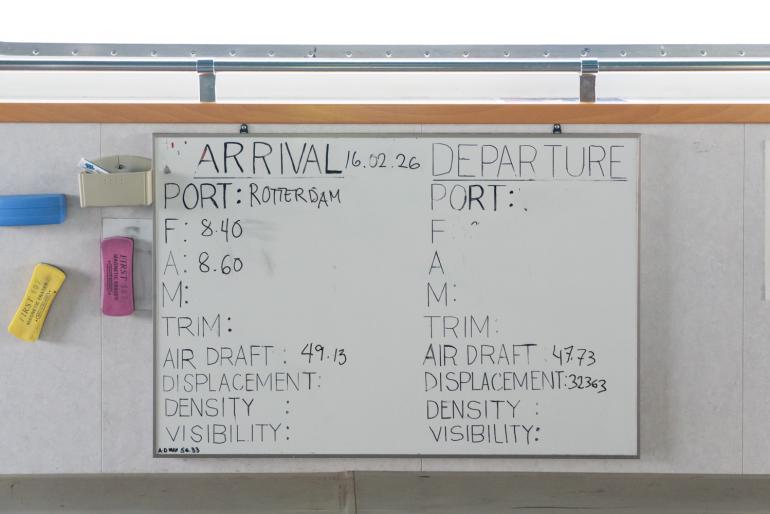 ARRIVAL 16.02.26
PORT: ROTTERDAM
F: 8.40
A: 8.60
M:
TRIM:
AIR DRAFT : 49.13
DISPLACEMENT:
DENSITY :
VISIBILITY:
DEPARTURE
PORT:
F:
A
M:
TRIM:
AIR DRAFT : 47.73
DISPLACEMENT:32363
DENSITY :
VISIBILITY:
FIRST
FIRST